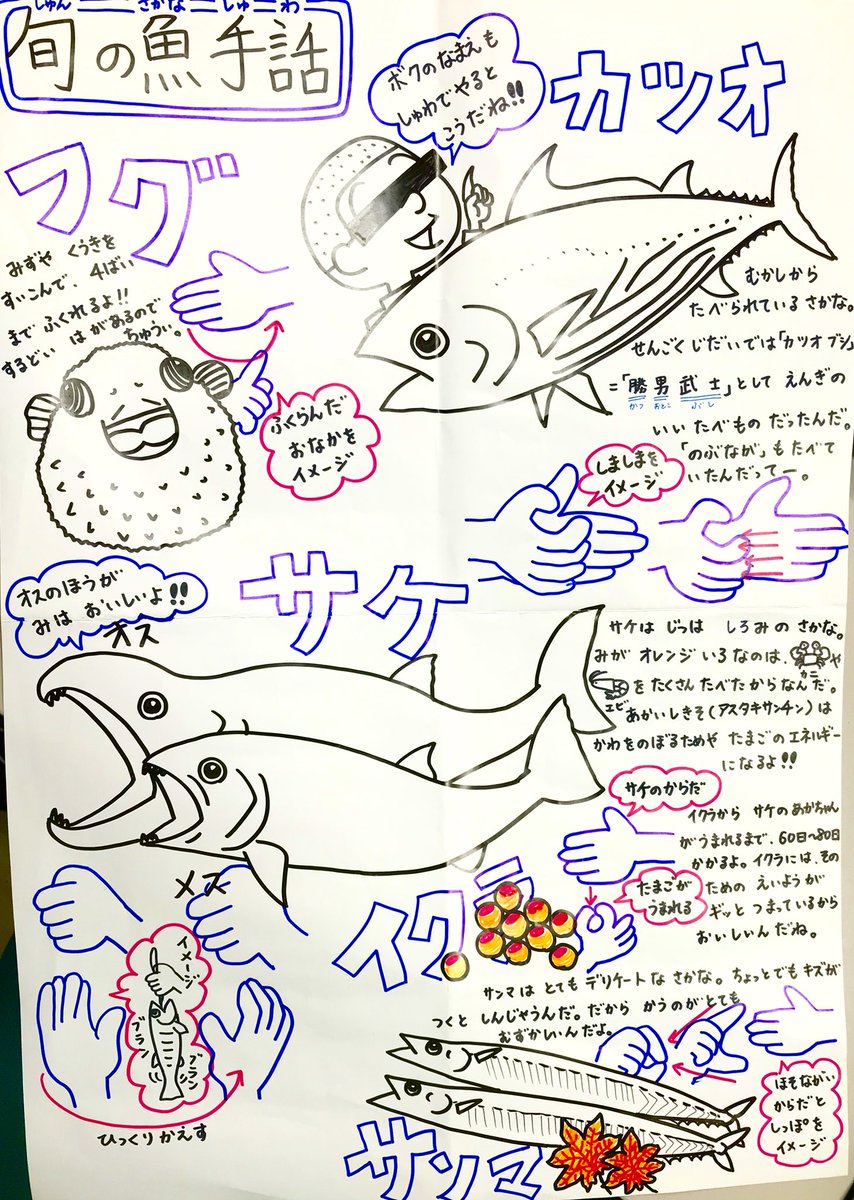 しゅん さかな しゅ わ
旬の魚手話
ボクのなまえも
しゅわでやると
こうだね!!
カツオ
フグ
みずや くうきを
すいこんで、4ばい
まで ふくれるよ!!
するどい はがあるので
ちゅうい。
ふくらんだ
おなかを
イメージ
むかしから
たべられている さかな。
せんごくじだいでは「カツオブシ」
=「勝男武士」として えんぎの
かつ おとこ ぶし
いい たべもの だったんだ。
「のぶなが」も たべて
いたんだってー。
しましまを
イメージ
サケ
オスのほうが
みは おいしいよ!!
オス
メス
サケは じつは しろみ の さかな。
みが オレンジいろなのは、や
カニ
をたくさん たべたからなんだ。
エビ
あかいしきそ(アスタキサンチン)は
かわをのぼるためや たまごのエネルギー
になるよ!!
サケのからだ
イクラから サケのあかちゃん
がうまれるまで、60日〜80日
かかるよ。イクラには、その
ための えいようが
ギッと つまっているから
おいしいんだね。
たまごが
うまれる
イクラ
イメージ
ブラン
ブラン
ひっくりかえす
サンマは とても デリケートな さかな。ちょっとでも キズが
つくと しんじゃうんだ。だから かうのがとても
むずかしいんだよ。
ほそながい
からだと
しっぽを
イメージ
サンマ